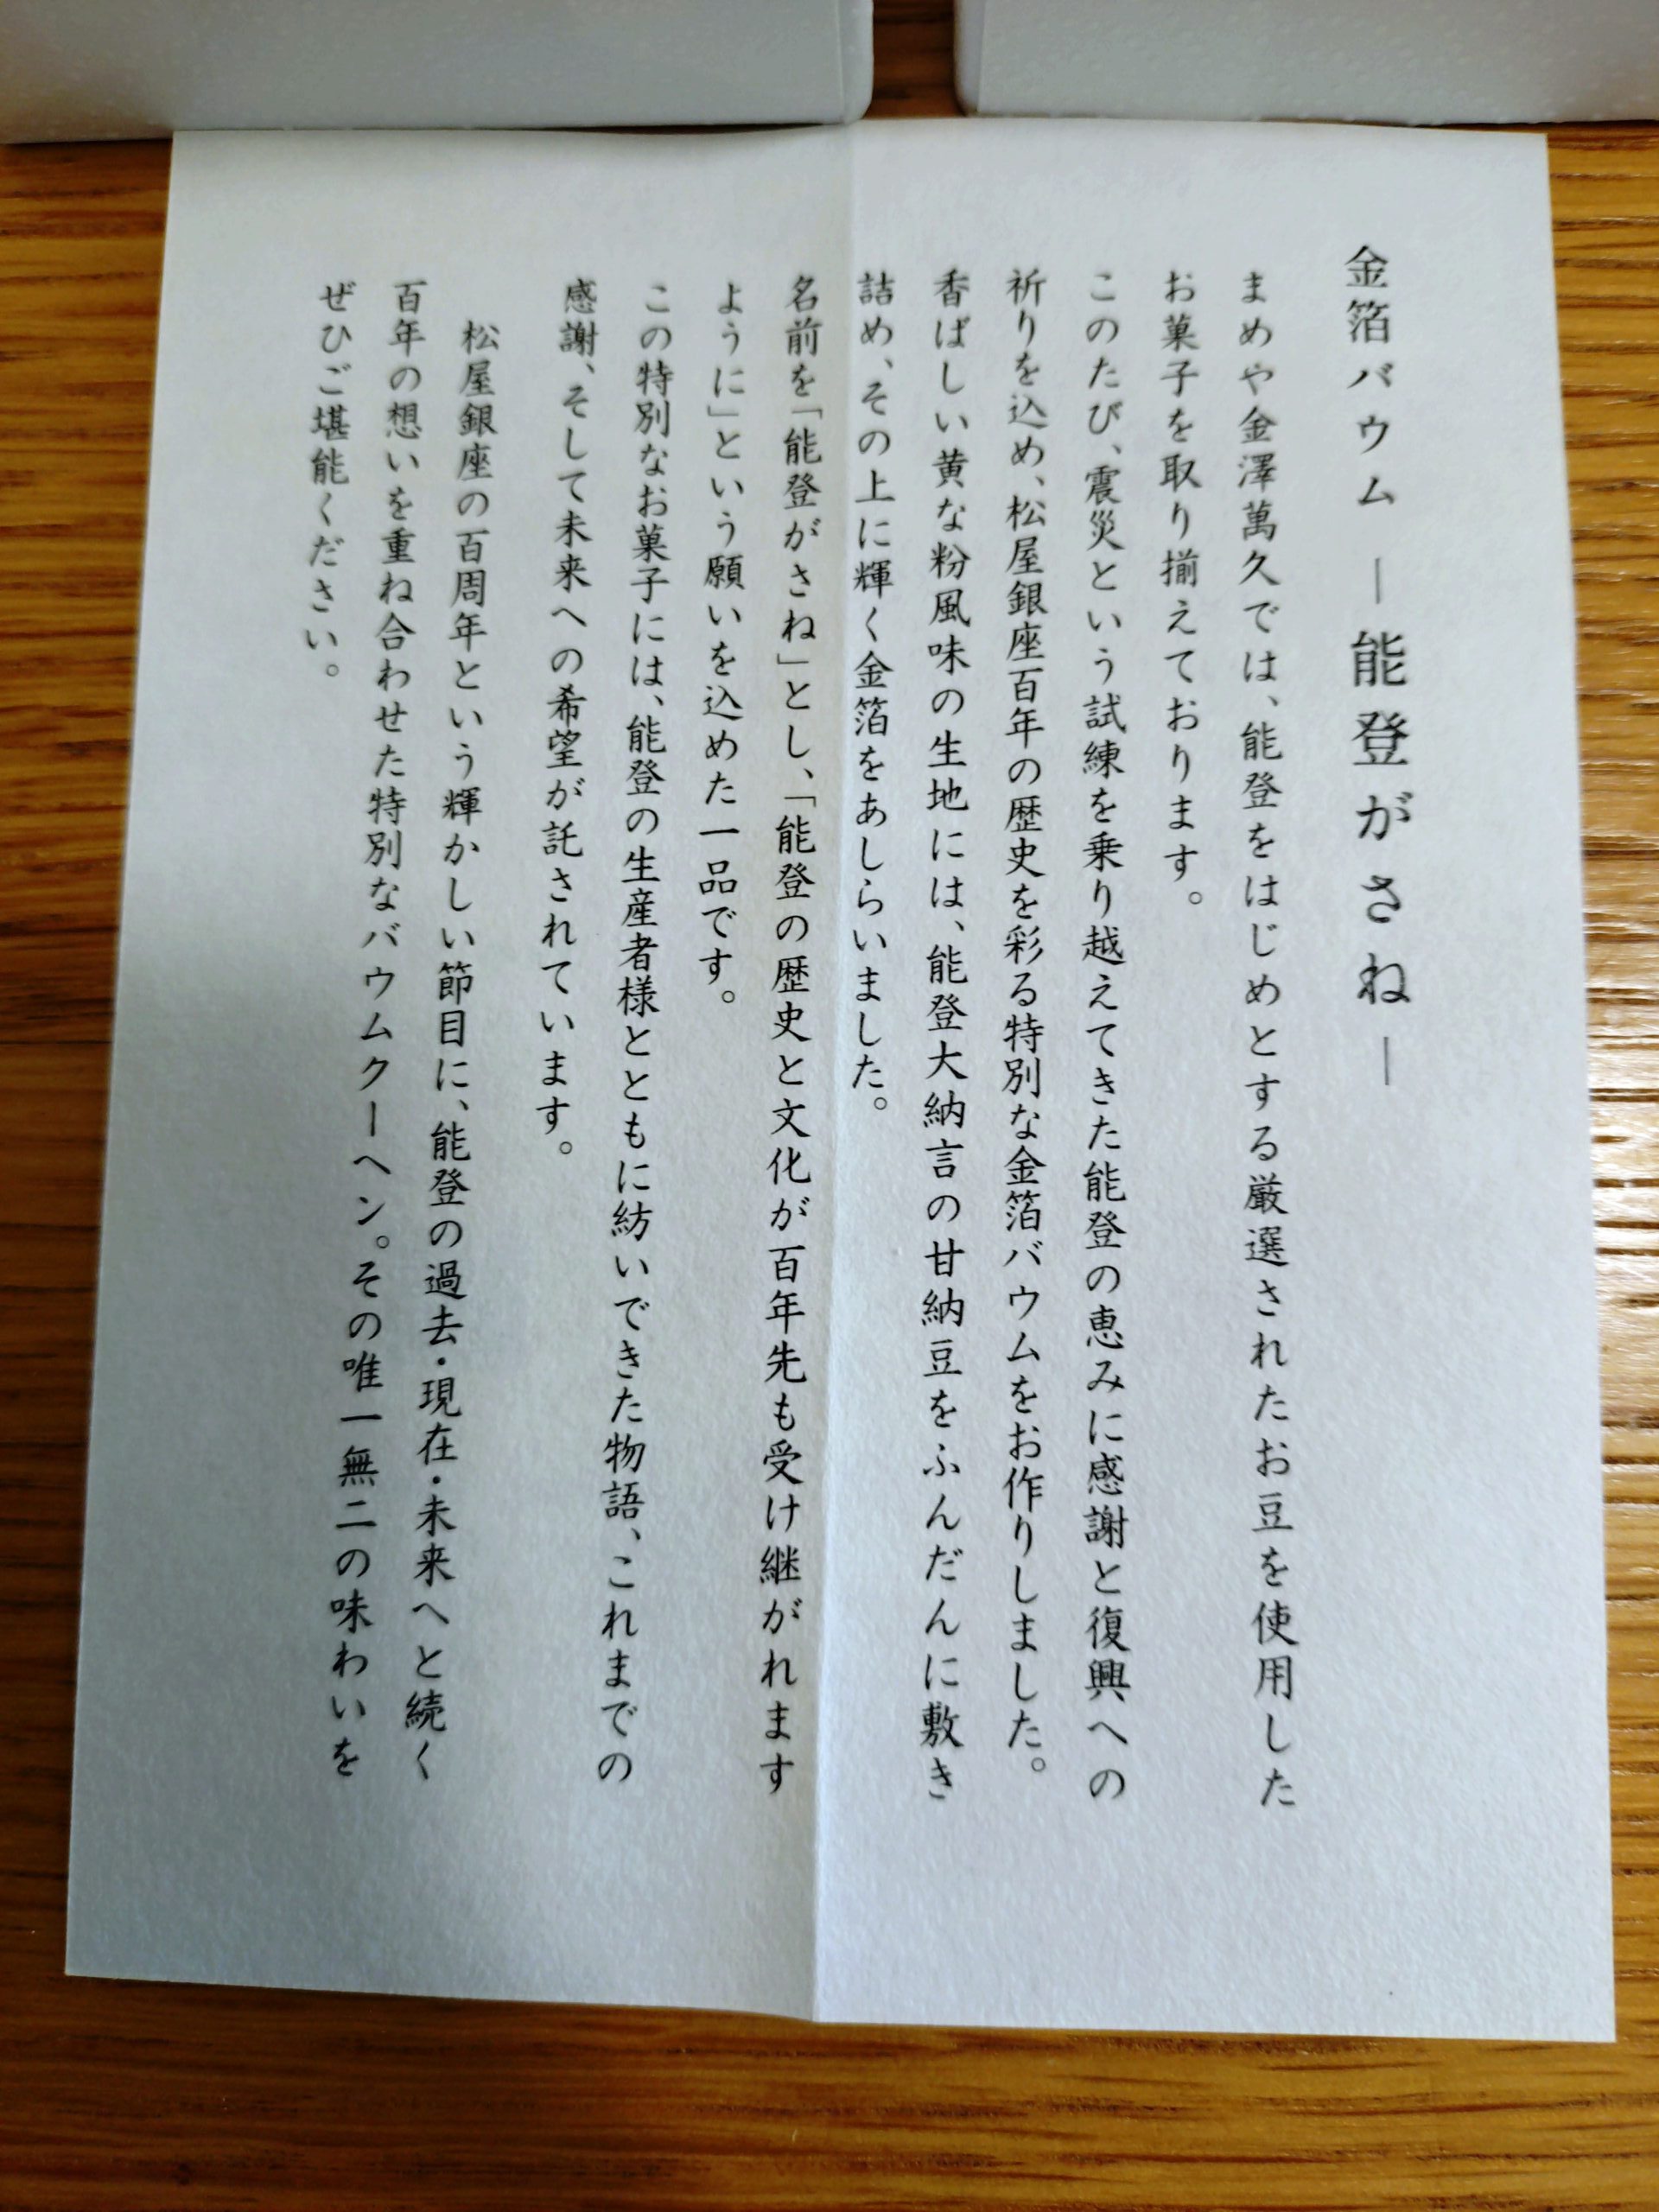 金箔バウム ―能登がさね―
まめや金澤萬久では、能登をはじめとする厳選されたお豆を使用した
お菓子を取り揃えております。
このたび、震災という試練を乗り越えてきた能登の恵みに感謝と復興への
祈りを込め、松屋銀座百年の歴史を彩る特別な金箔バウムをお作りしました。
香ばしい黄な粉風味の生地には、能登大納言の甘納豆をふんだんに敷き
詰め、その上に輝く金箔をあしらいました。
名前を「能登がさね」とし、「能登の歴史と文化が百年先も受け継がれます
ように」という願いを込めた一品です。
この特別なお菓子には、能登の生産者様とともに紡いできた物語、これまでの
感謝、そして未来への希望が託されています。
松屋銀座の百周年という輝かしい節目に、能登の過去・現在・未来へと続く
百年の想いを重ね合わせた特別なバウムクーヘン。その唯一無二の味わいを
ぜひご堪能ください。